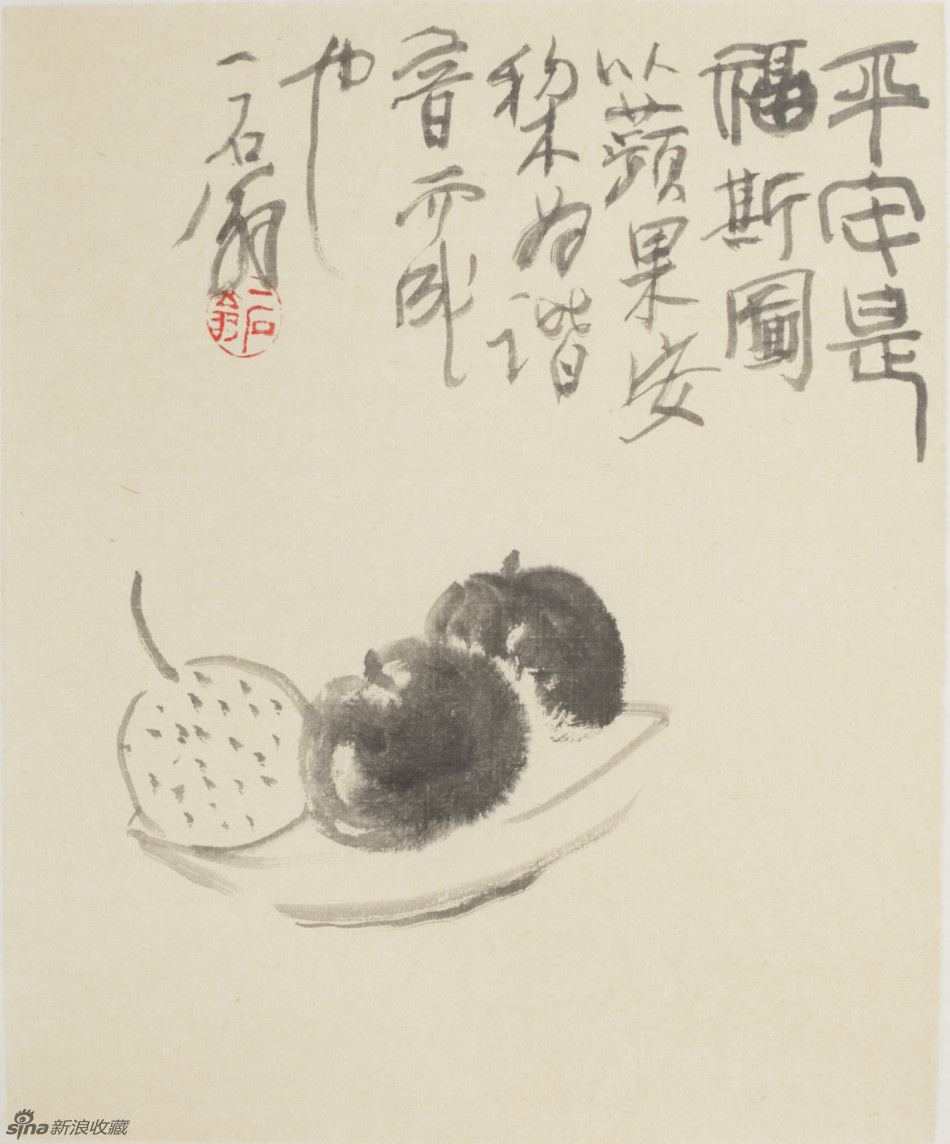 平安是
福斯圖
以蘋果安
梨為諧
音而成
也
一石翁
一石翁
sina新浪收藏